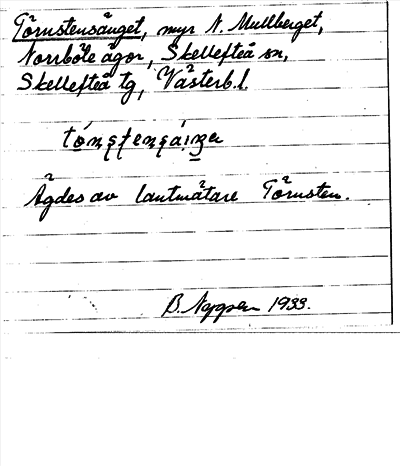 Törnstensänget, myr N. Mullberget,
Norrböle ägor, Skellefteå sn,
Skellefteå tg, Västerb.l.
Ägdes av lantmätare Törnsten.
B. 1933.